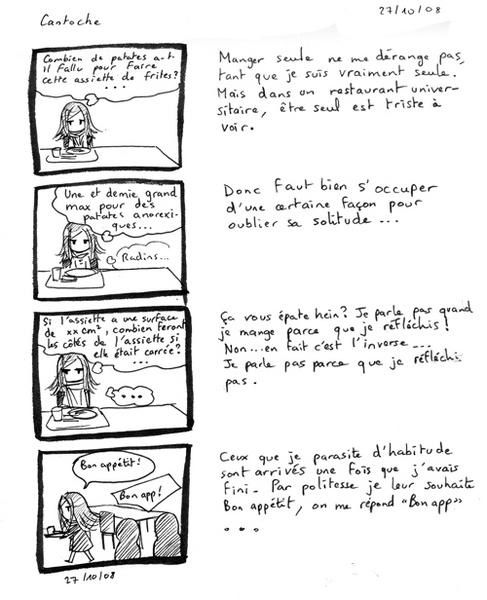 Cantoche
27/10/08
Combien de patates a-t-
il fallu pour faire
cette assiette de frites?
...
Manger seule ne me dérange pas,
tant que je suis vraiment seule.
Mais dans un restaurant univer-
sitaire, être seul est triste à
voir.
Une et demie grand
max pour des
patates anorexi-
ques...
Radins...
Donc faut bien s'occuper
d'une certaine façon pour
oublier sa solitude...
Si l'assiette a une surface
de xx cm², combien feront
les côtés de l'assiette si
elle était carrée?
...
Ça vous épate hein? Je parle pas quand
je mange parce que je réfléchis!
Non...en fait c'est l'inverse...
Je parle pas parce que je réfléchi
pas.
Bon appétit!
Bon app!
Ceux que je parasite d'habitude
sont arrivés une fois que j'avais
fini. Par politesse je leur souhaite
Bon appétit, on me répond "Bon app"
...
27/10/08